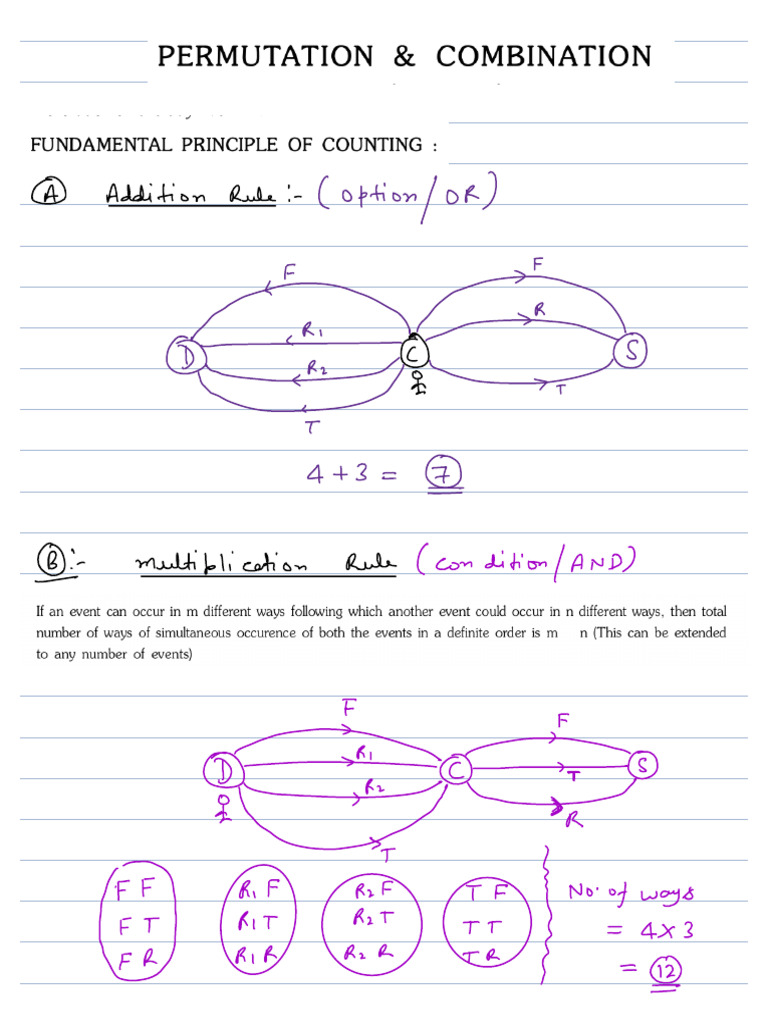 PERMUTATION & COMBINATION
FUNDAMENTAL PRINCIPLE OF COUNTING :
(A) Addition Rule :- (option/OR)
F F
R1 R
D C S
R2
T
T
4 + 3 = 7
(B) :- Multiplication Rule (condition/AND)
If an event can occur in m different ways following which another event could occur in n different ways, then total
number of ways of simultaneous occurence of both the events in a definite order is m n (This can be extended
to any number of events)
F F
R1
D C T S
R2
R
T
F F R1 F R2 F T F No. of ways
F T R1 T R2 T T T = 4 X 3
F R R1 R R2 R T R = 12